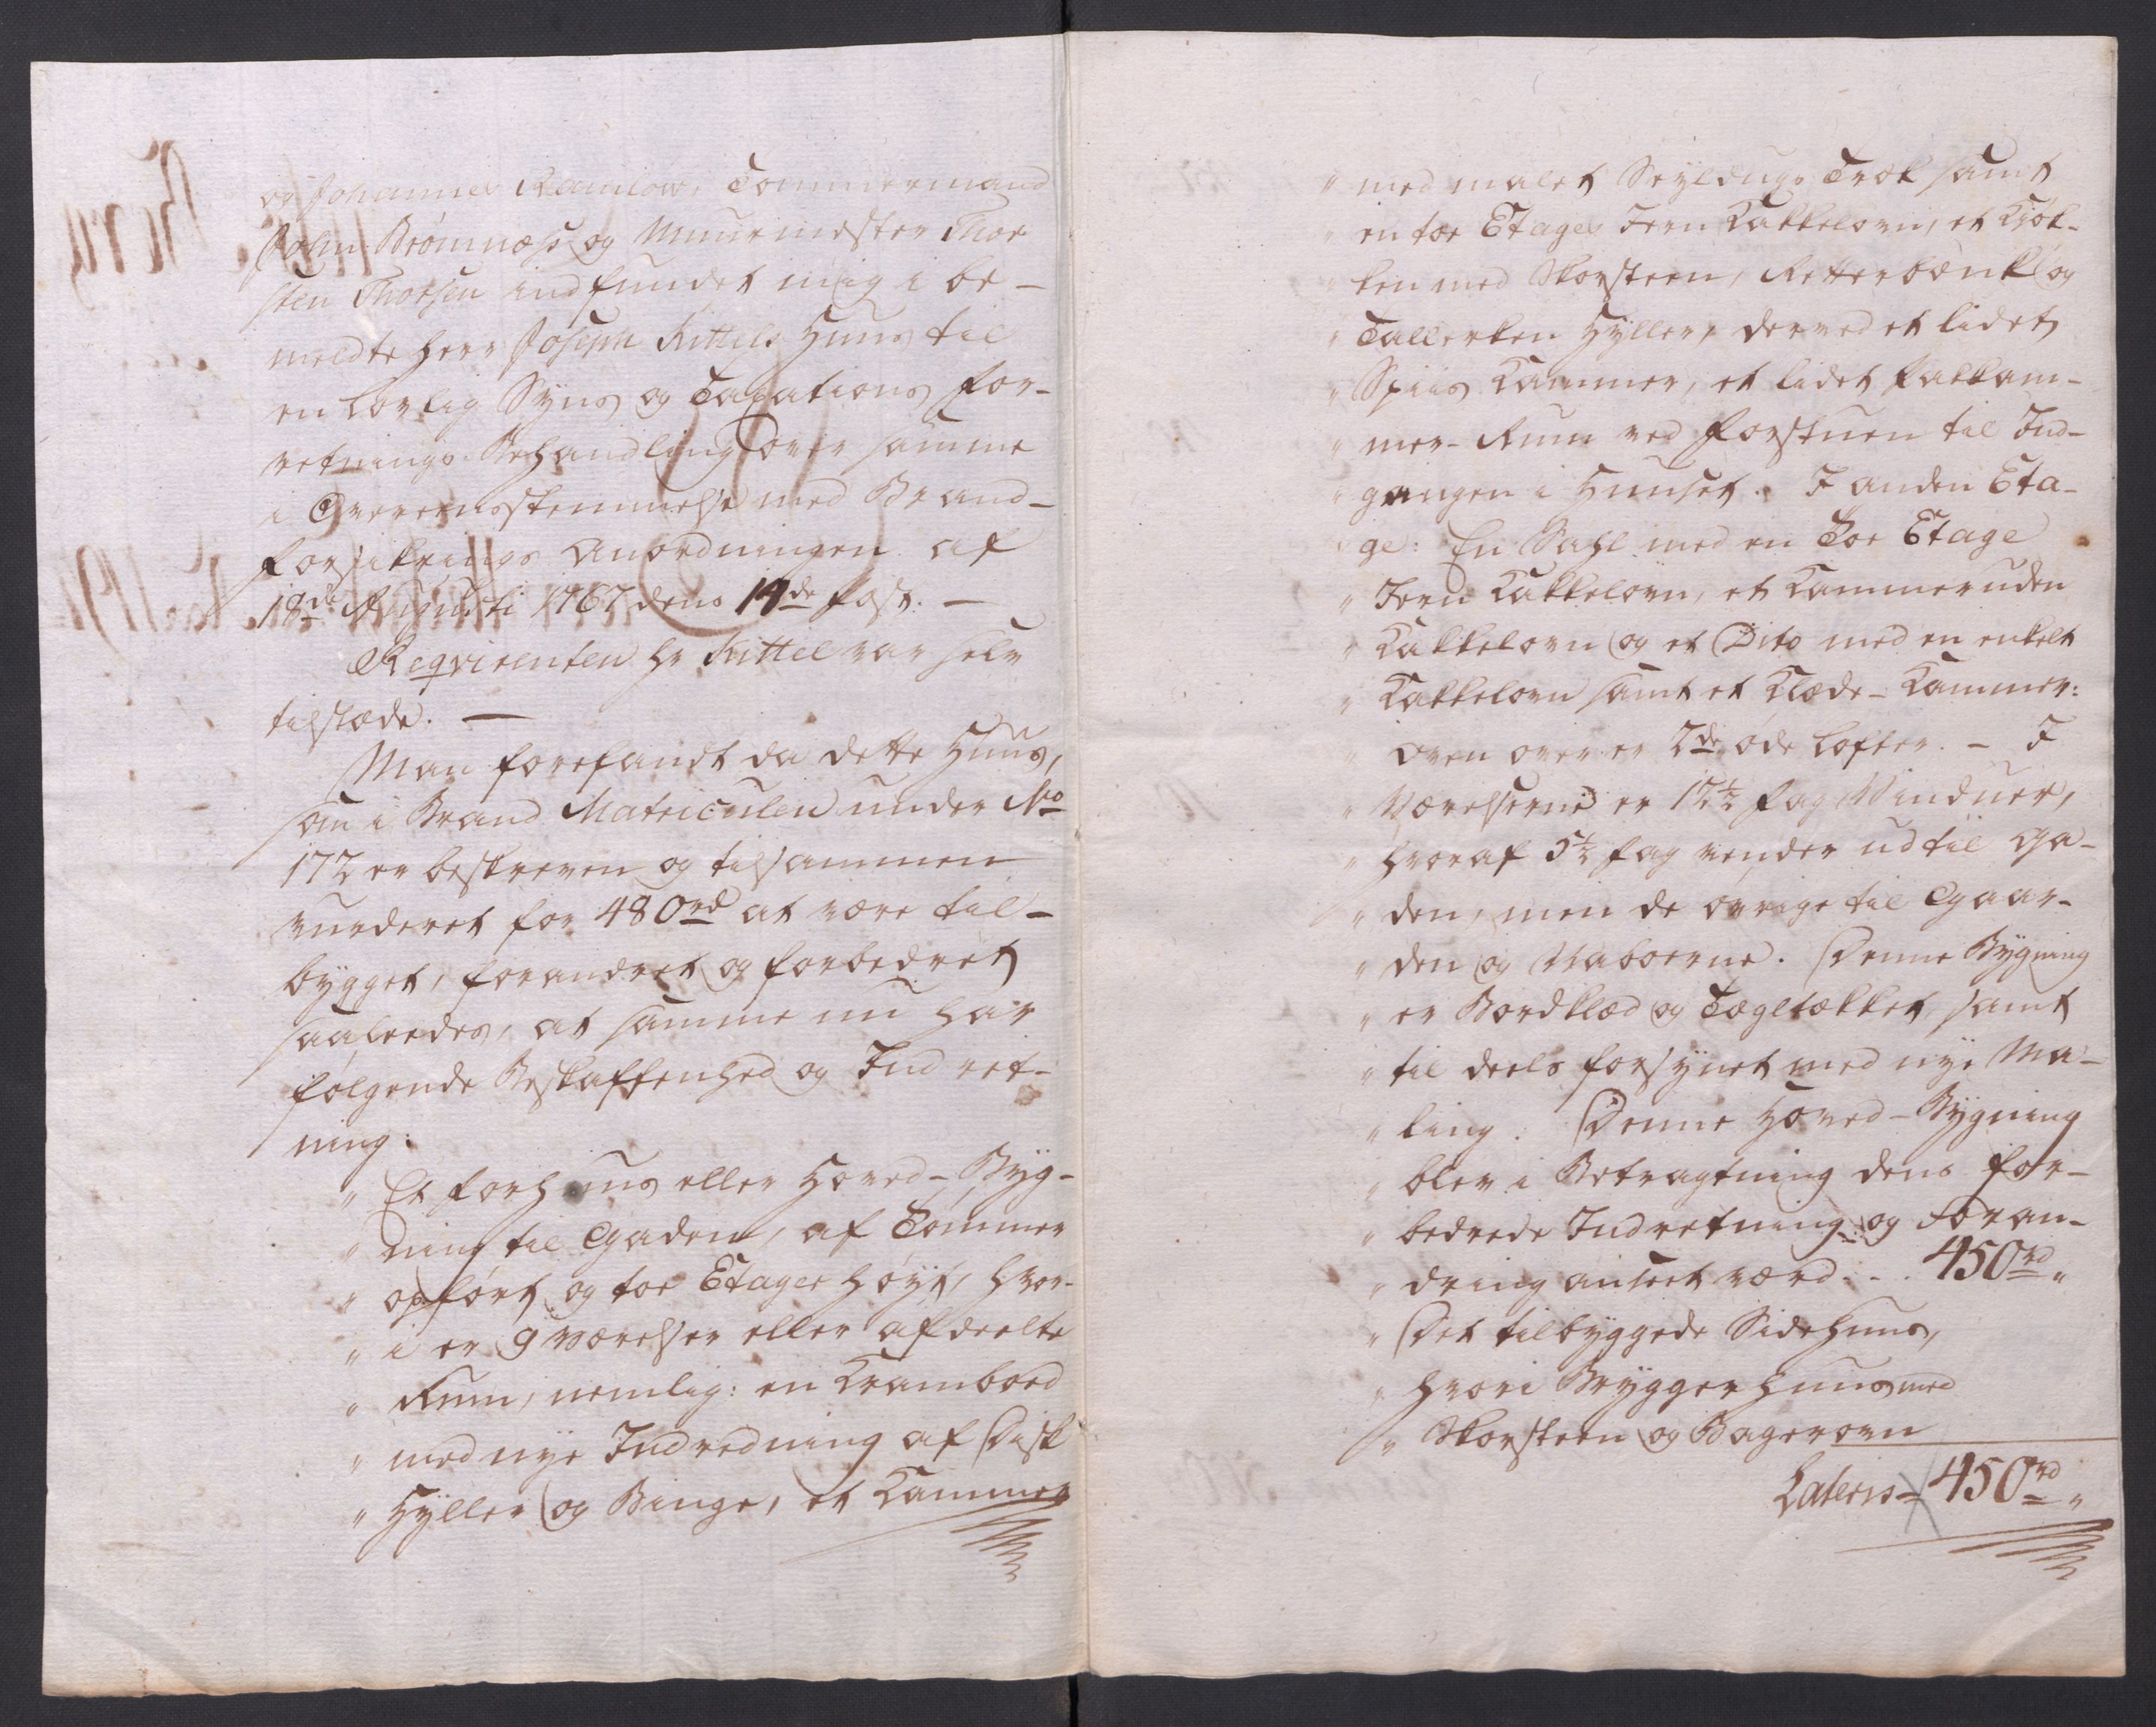 og Johannes Ramlow, Tømmermand
John Brømnæss og Muurmester Thor
sten Thorsen indfundet mig i be-
meldte Herr Joseph Kittels Huus til
en lovlig Syns og Taxations For-
retnings Behandling over samme
i Overeensstemmelse med Brand-
forsikrings Anordningen af
18de Augusti 1767 dens 14de Post. —
Reqvirenten Hr Kittel var selv
tilstæde. —
Man forefandt da dette Huus,
som i Brand Matriculen under No
172 er beskreven og tilsammen
vurderet for 480rd at være til-
bygget, forandret og forbedret
saaleedes, at samme nu har
følgende Beskaffenhed og Indret-
ning:
" Et Forhuus eller Hoved-Byg-
" ning til Gaden, af Tømmer
" opført og toe Etager høyt, hvor-
" i er 9 Værelser eller afdeelte
" Rum, nemlig: en Kramboed
" med nye Indredning af Disk
" Hyller og Binge, et Kammer
" med malet Seyldugs Træk samt
" en toe Etages Jern Kakkelovn, et Kjøk-
" ken med Skorsteen, Retterbænk og
" Tallerken Hyller, derved et lidet
" Spiis Kammer, et lidet Fatkam-
" mer-Rum ved Forstuen til Ind-
" gangen i Huuset. I anden Eta-
" ge: En Sahl med en Toe Etage
" Jern Kakkelovn, et Kammer uden
" Kakkelovn og et Dito med en enkelt
" Kakkelovn samt et Klæde-Kammer:
" oven over er 2de øde Lofter. - I
" Værelserne er 17½ fag Vinduer,
" hvoraf 5½ fag vender ud til Ga-
" den, men de øvrige til Gaar-
" den og Naboerne. Denne Bygning
" er Bordklæd og Tegltækket, samt
" til deels forsynet med nye Ma-
" ling. Denne Hoved-Bygning
" blev i Betragtning dens for-
" bedrede Indretning og Foran-
" dring anseet værd... 450rd "
" Det tilbyggede Sidehuus,
" hvori Bryggerhuus med
" Skorsteen og Bagerovn
Lateris = 450rd "